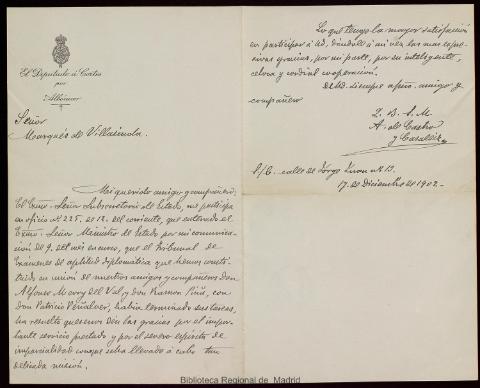 El Diputado á Cortes
por
Albocácer
Señor
Marqués de Villasinda.
Mi querido amigo y compañero:
El Excmo. Señor Subsecretario de Estado, me participa
en oficio nº 225, de 12. del corriente, que enterado el
Excmo. Señor Ministro de Estado por mi comunica-
ción de 9. del mes en curso, que el Tribunal de
Exámenes de aptitud diplomática que hemos consti-
tuido en unión de nuestros amigos y compañeros Don
Alfonso Merry del Val, y don Ramon Piña, con
Don Patricio Peñalver, había terminado sus tareas,
ha resuelto que se nos den las gracias por el impor-
tante servicio prestado y por el severo espíritu de
imparcialidad con que se ha llevado á cabo tan
delicada misión.
Lo que tengo la mayor satisfacción
en participar á Ud, dándole á mi vez las mas expre-
sivas gracias, por mi parte, por su inteligente,
celosa y cordial cooperación.
De Ud. siempre afmo. amigo y
compañero
Q. B. S. M.
A. de Castro
y Casaleiz
S/C. calle de Jorge Juan nº 13.
17. de Diciembre de 1902.
Biblioteca Regional de Madrid